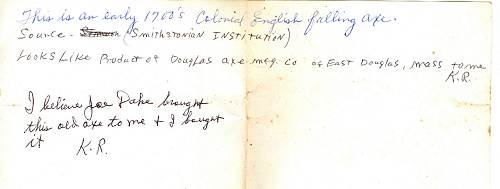 This is an early 1700's Colonial English falling axe.
Source - (Smithstonian Institution)
Looks Like Product of Douglas axe mfg. co of East Douglas, mass to me
K.R.
I believe Joe Dake brought
this old axe to me + I bought
it K.R.